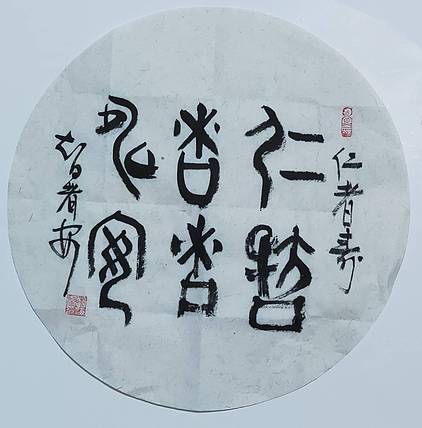 仁者寿
仁者寿
智者安
智者安